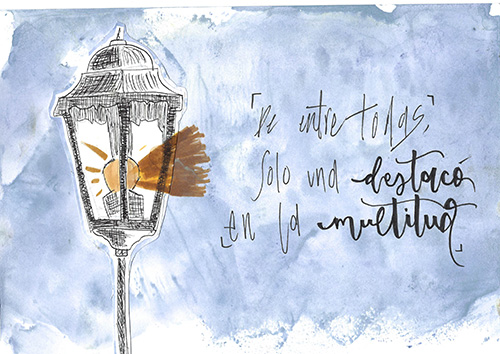 「De entre todas,
solo una destacó
en la multitud」